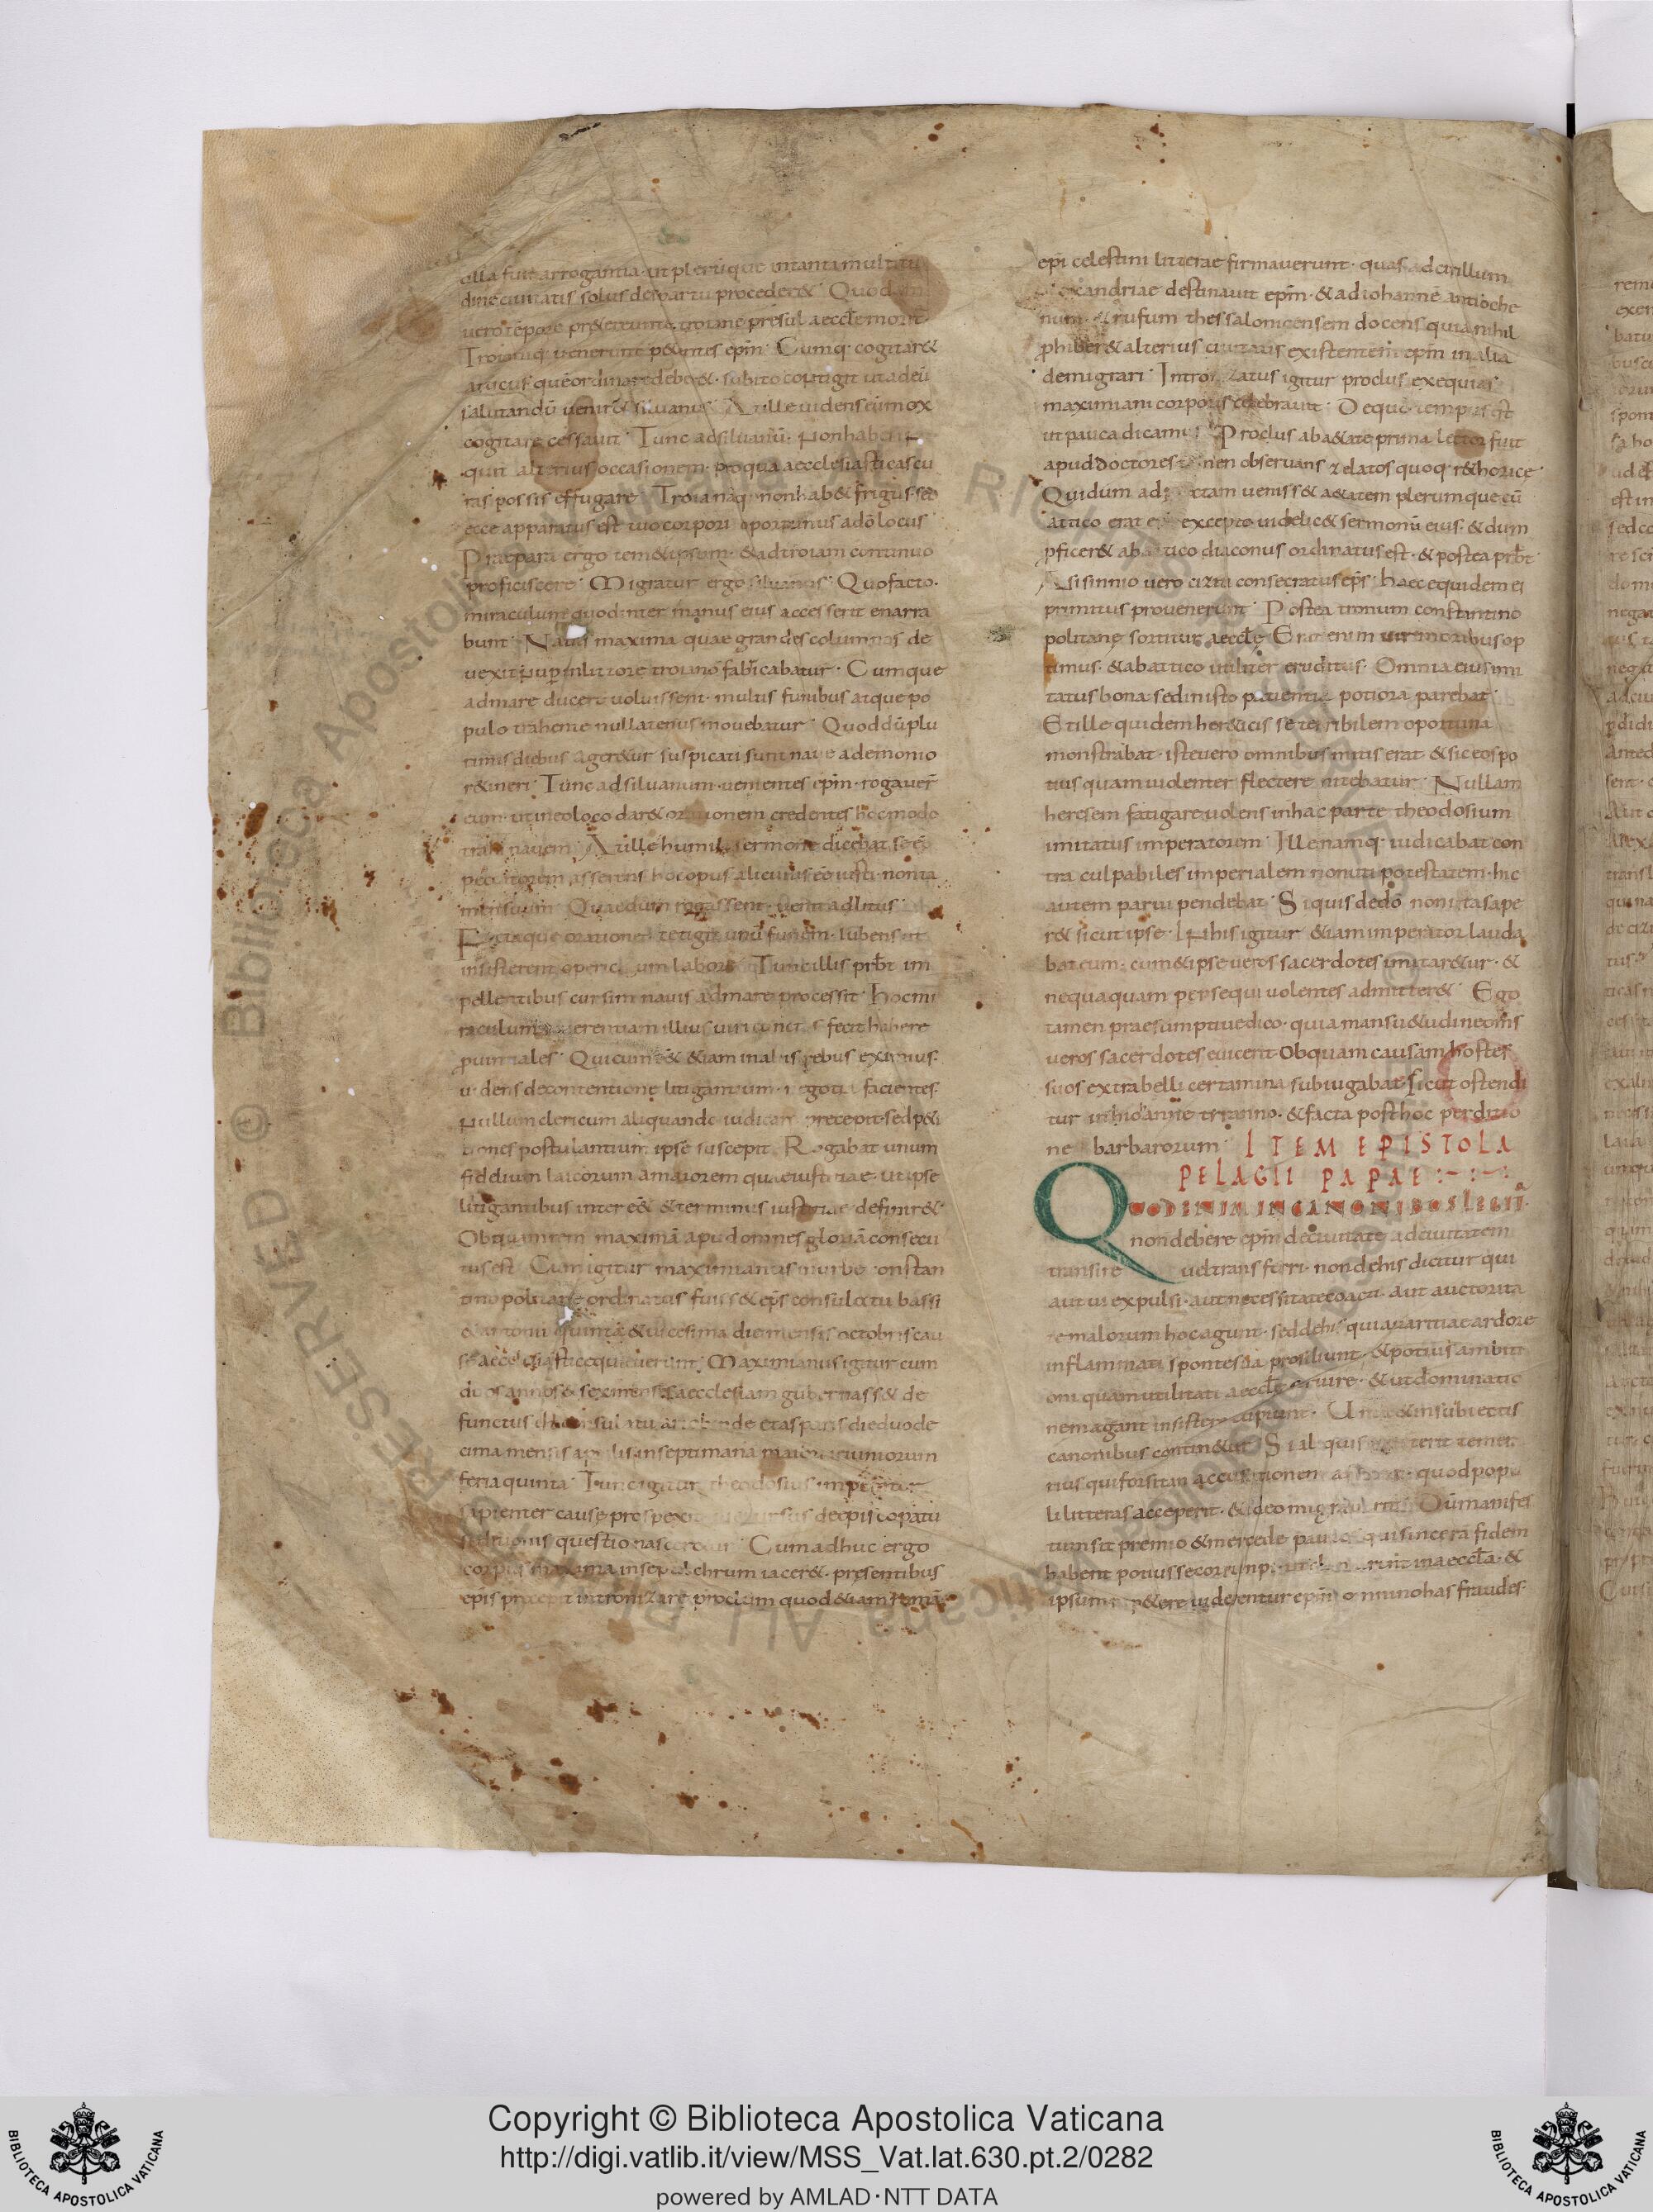 olla fuit arrogantia · ut plerũque in tanta multitu
dine ciuitatis solus desparatu proceder& · Quodam
uero tẽpore pr&ereunte troiane presul aeccłe morit·
Troiãniq· uenerunt p&entes epm̃ · Cumq· cogitar&
atticus quẽ ordinare deber& · subito contigit ut ad eũ
salutandũ uenir& siluanus · At ille uidens eũ mox
cogitare cessauit · Tunc ad siluanũ · Non habes in
quit alterius occasionem · pro qua aecclesiasticas cu
ras possis effugare · Troia nãq· non hab& frigus · sed
ecce apparatus est tuo corpori oportunus a dõ locus
Praepara ergo tem&ipsum · & ad troiam continuo
proficiscere · Migratur ergo siluanus · Quo facto ·
miraculum quod inter manus eius accesserit enarra
bunt · Nauis maxima quae grandes columnas de
uexit nup in litore troiano fabricabatur · Cumque
ad mare ducere uoluissent · multis funibus atque po
pulo trahente nullatenus mouebatur · Quod dũ plu
rimis diebus ager&ur suspicati sunt naue a demonio
r&ineri · Tunc ad siluanum · uenientes epm̃ · rogauer̃
eum · ut in eo loco dar& orationem credentes hoc modo
trahi nauem · At ille humili sermone dicebat se eẽ
peccatorem asserens hoc opus alicuius eẽ iusti · non ta
men suum · Quae dum rogassent · uenit ad litus
Factaque oratione · tetigit unũ funem · iubens ut
insisterent operi cum labore · Tunc illis prb̃t im
pellentibus cursim nauis ad mare processit · Hoc mi
raculum reuerentiam illius uiri cunctos fecit habere
puinciales · Qui cum & &iam in aliis rebus eximius ·
uidens de contentione litigantium · negotia facientes ·
Nullum clericum aliquando iudicare precepit · sed p&i
tiones postulantium ipse suscepit · Rogabat unum
fidelium laicorum amatorem quae iustitiae · ut ipse
litigantibus inter eẽ& & terminus iustitiae definir&
Ob quam rem maximã apud omnes gloriã consecu
tus est · Cum igitur maximianus in urbe constan
tinopolitane ordinatus fuiss& eps̃ consulatu bassi
& antonii quinta & uicesima die mensis octobris cau
sae aecclesiasticae quieuerunt · Maximianus igitur cum
duos annos & sex menses aecclesiam gubernass& de
functus est consulatu ariobinde et asparis die duode
cima mensis aprilis in septimana maiore ieiuniorum
feria quinta · Tunc igitur theodosius imperator
sapienter cause prospexit ne rursus de episcopatu
seditionis questio nascer&ur · Cum adhuc ergo
corpus maximiani in sepulchrum iacer& · presentibus
epis precepit intronizare proclum quod &iam romã
epi celestini litterae firmauerunt · quas ad cirillum
alexandriae destinauit epm̃ · & ad iohannẽ antioche
num · & rufum thessalonicensem docens quia nihil
phiber& alterius ciuitatis existentem epm̃ in alia
demigrari · Intronizatus igitur proclus exequias
maximiani corporis celebrauit · De quo tempus est
ut pauca dicamus · Proclus ab a&ate prima lector fuit
apud doctores · nen observans zelatos quoq· r&horice
Qui dum ad iustam ueniss& a&atem plerumque cũ
attico erat · exceptor uidelic& sermonũ eius · & dum
pficer& ab attico diaconus ordinatus est · & postea prb̃t
A sisinnio uero cizici consecratus eps̃ · haec equidem ei
primitus prouenerunt · Postea tronum constantino
politane sortitur aeccłe · Erat enim uir moribus op
timus · & ab attico utiliter eruditus · Omnia eius imi
tatus bona · sed in isto patientia potiora parebat ·
Et ille quidem her&icis se terribilem oportuna
monstrabat · iste uero omnibus mitis erat · & sic eos po
tius quam uiolenter flectere nitebatur · Nullam
heresem fatigare uolens in hac parte theodosium
imitatus imperatorem · Ille namq· iudicabat con
tra culpabiles imperialem non uti potestatem · hic
autem parui pendebat · Si quis de dõ non ita sape
r& sicut ipse · In his igitur &iam imperator lauda
bat eum · cum & ipse ueros sacerdotes imitar&ur · &
nequaquam persequi uolentes admitter& · Ego
tamen praesumptiue dico · quia mansu&udine om̃s
ueros sacerdotes euicerit · Ob quam causam hostes
suos extra belli certamina subiugabat · Sicut ostendi
tur in hiohanne tiranno · & facta post hoc perditio
ne barbarorum · ITEM EPISTOLA
PELAGII PAPAE :-:-:
QUOD ENIM IN CANONIBUS LEGIT̃
non debere epm̃ de ciuitate ad ciuitatem
transire uel transferri · non de his dicitur qui
aut ui expulsi · aut necessitate coacti · aut auctorita
te malorum hoc agunt · sed de his qui auaritiae ardore
inflammati sponte sua prosiliunt · & potius ambiti
oni quam utilitati aeccłe seruire · & ut dominatio
nem agant insistere cupiunt · Unde & in subiectis
canonibus contin&ur · Si aliquis extiterit temer
rius qui forsitan accusationem afferat · quod popu
li litteras acceperit · & ideo migrauerit · Dũ manifes
tum sit premio & mercede paucos qui sincerã fidem
habent potuisse corrumpi · ut clamarent in aeccła · &
ipsum p&ere uiderentur epm̃ omnino has fraudes
Copyright © Biblioteca Apostolica Vaticana
http://digi.vatlib.it/view/MSS_Vat.lat.630.pt.2/0282
powered by AMLAD·NTT DATA
BIBLIOTECA APOSTOLICA VATICANA
BIBLIOTECA APOSTOLICA VATICANA